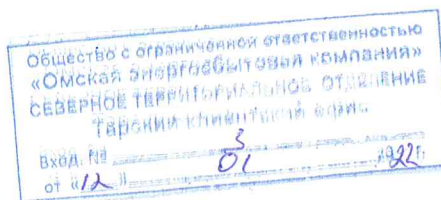 Общество с ограниченной ответственностью
«Омская энергосбытовая компания»
СЕВЕРНОЕ ТЕРРИТОРИАЛЬНОЕ ОТДЕЛЕНИЕ
Тарский клиентский офис
Вход. № 3
от «12» 01 2022г.